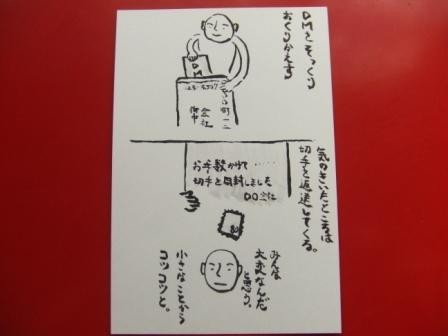 DMをそっくり
おくりかえす
DM
会社
御中
気のきいたところは
切手を返送してくる。
お手数かけて……
切手を同封しました
〇〇会社
みんな
大変なんだ
と思う。
小さなことから
コツコツと。